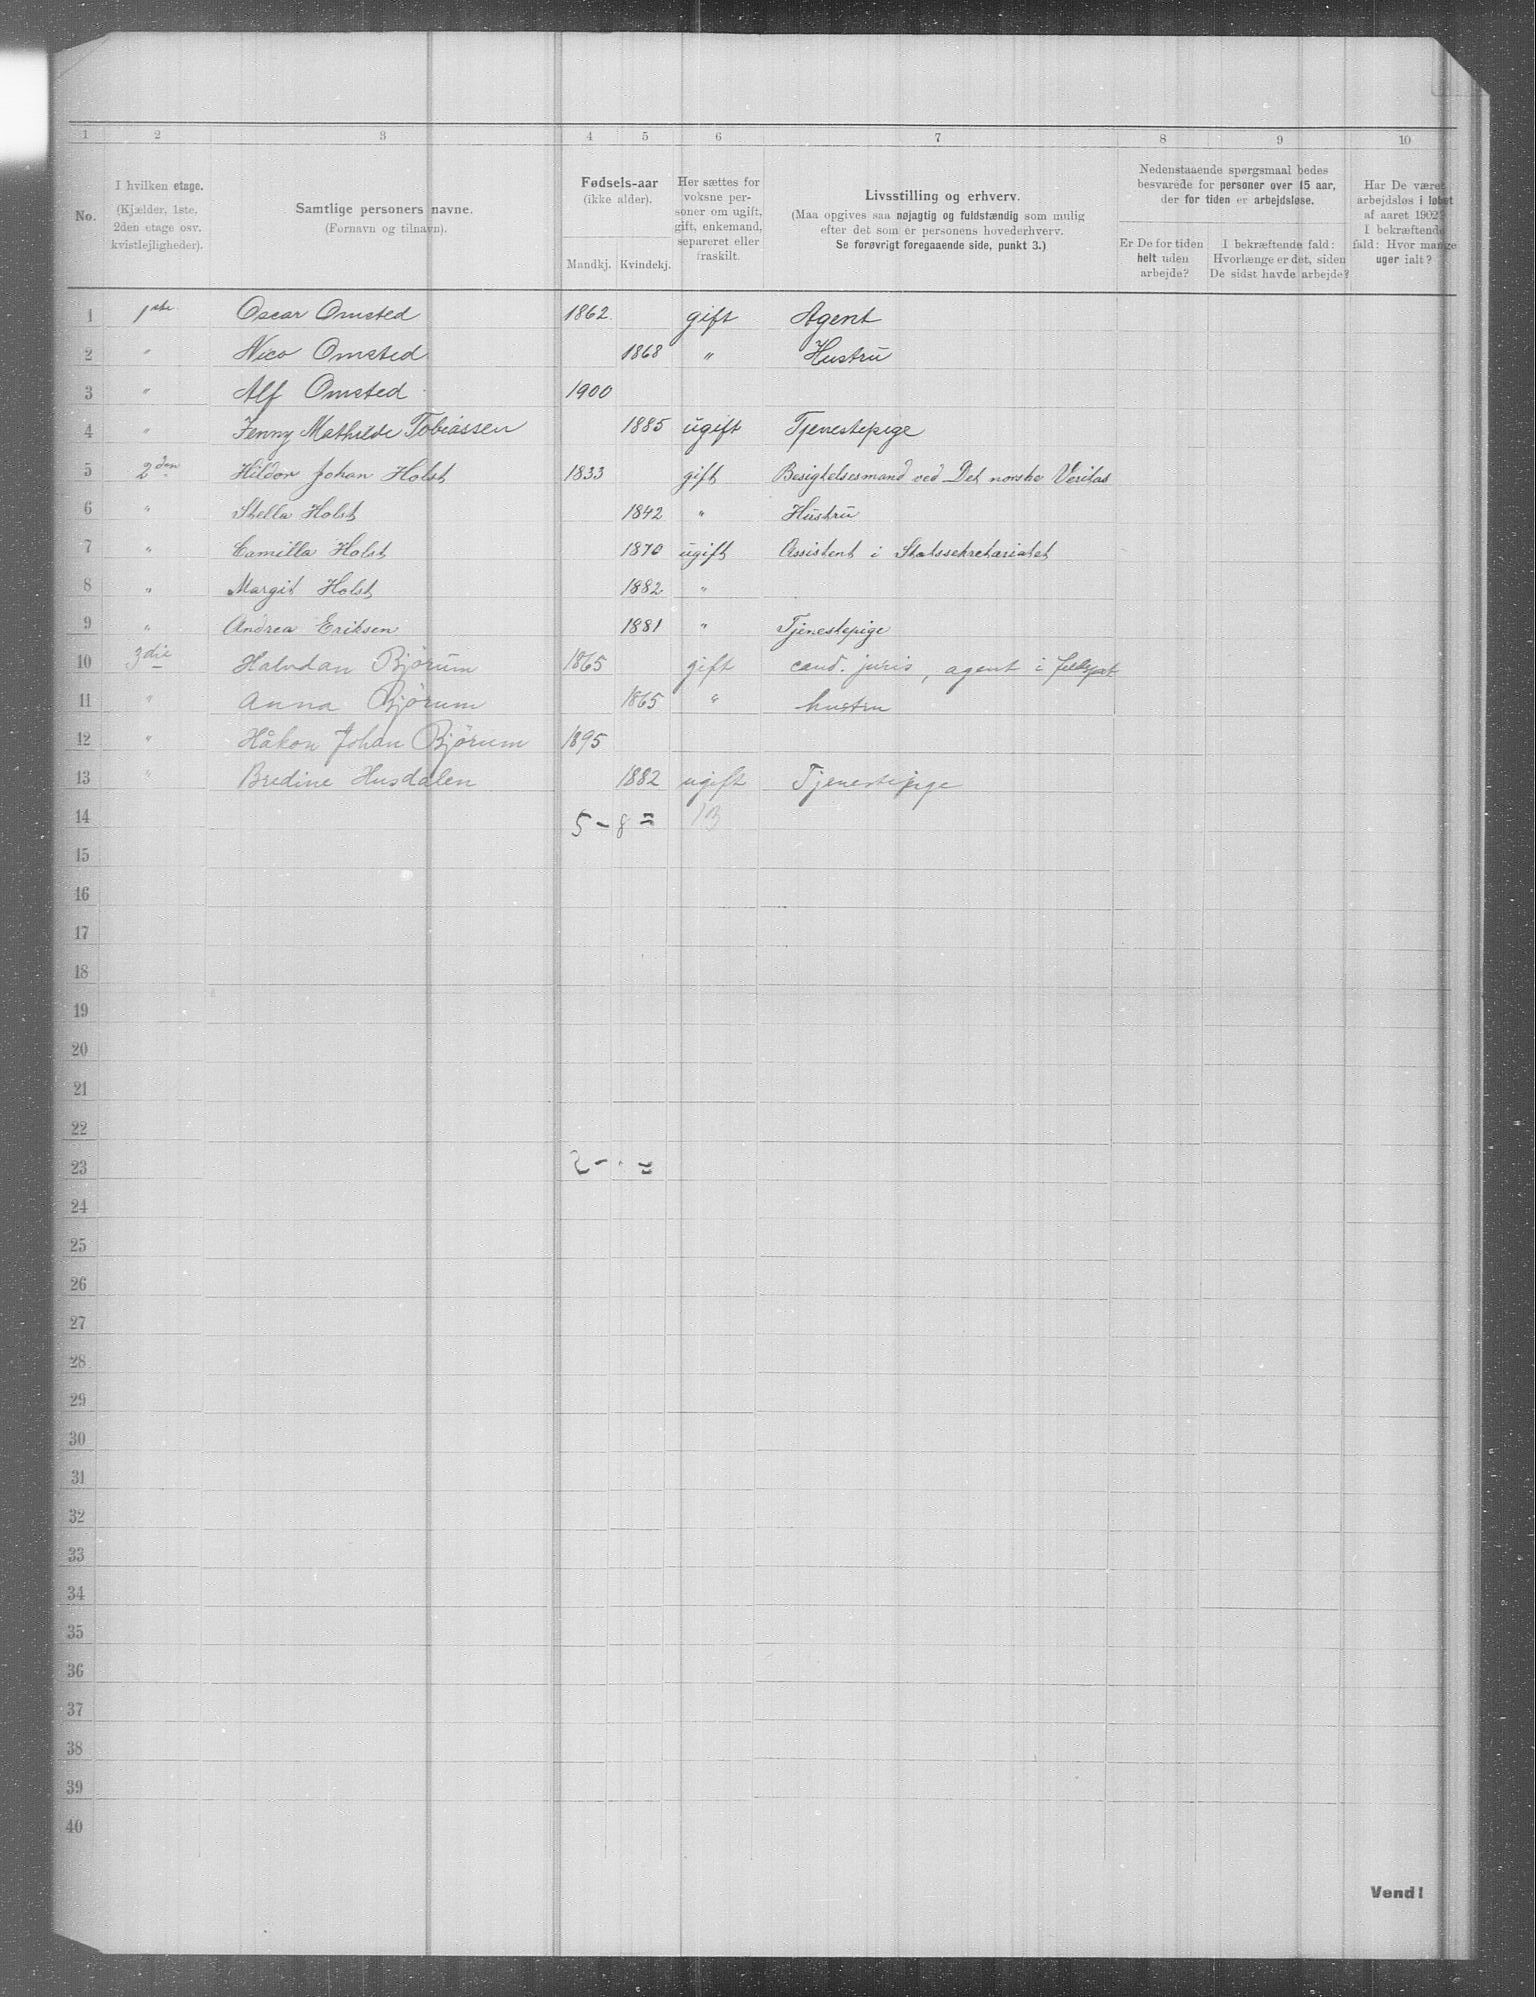 1 2 3 4 5 6 7 8 9 10
No.
I hvilken etage.
(Kjælder, 1ste,
2den etage osv.
kvistlejligheder).
Samtlige personers navne.
(Fornavn og tilnavn).
Fødsels-aar
(ikke alder).
Mandkj. Kvindekj.
Her sættes for
voksne per-
soner om ugift,
gift, enkemand,
separeret eller
fraskilt.
Livsstilling og erhverv.
(Maa opgives saa nøjagtig og fuldstændig som mulig
efter det som er personens hovederhverv.
Se forøvrigt foregaaende side, punkt 3.)
Nedenstaaende spørgsmaal bedes
besvarede for personer over 15 aar,
der for tiden er arbejdsløse.
Er De for tiden
helt uden
arbejde?
I bekræftende fald:
Hvorlænge er det, siden
De sidst havde arbejde?
Har De været
arbejdsløs i løbet
af aaret 1902?
I bekræftende
fald: Hvor mange
uger ialt?
1 1ste Oscar Omsted 1862 gift Agent
2 " Nico Omsted 1868 " Hustru
3 " Alf Omsted 1900
4 " Jenny Mathilde Tobiassen 1885 ugift Tjenestepige
5 2den Hildor Johan Holst 1833 gift Besigtelsesmand ved Det norske Veritas
6 " Stella Holst 1842 " Hustru
7 " Camilla Holst 1870 ugift Assistent i Statssekretariatet
8 " Margit Holst 1882 "
9 " Andrea Eriksen 1881 " Tjenestepige
10 3die Halvdan Bjørum 1865 gift cand. juris, agent i feldspat
11 " Anna Bjørum 1865 " hustru
12 " Håkon Johan Bjørum 1895
13 " Bredine Husdalen 1882 ugift Tjenestepige
14 5 - 8 = 13
15
16
17
18
19
20
21
22
23
24
25
26
27
28
29
30
31
32
33
34
35
36
37
38
39
40
Vend!